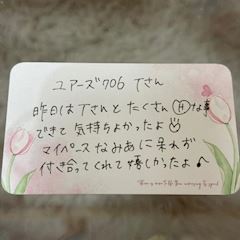 ユアーズ706 Tさん
昨日はTさんとたくさんHな事
できて気持ちよかったよ
マイペースなみあに呆れず
付き合ってくれて嬉しかったよ♪